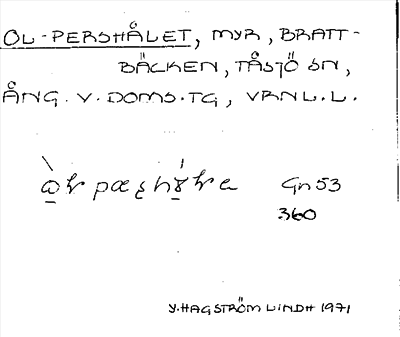 OL-PERSHÅLET, MYR, BRATT-
BÄCKEN, TÅSJÖ SN,
ÅNG. V. DOMS. TG, VRNL. L.
Gn 53
360
Y. HAGSTRÖM LINDH 1971